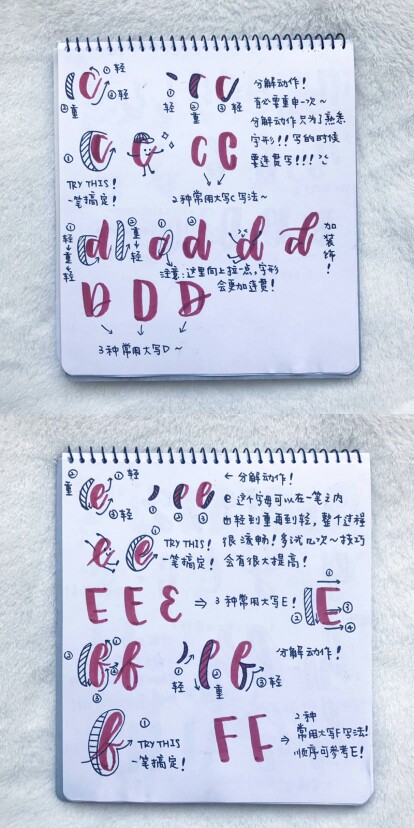 ①轻
C C C C
②重 ③轻
①轻 ②重 ③轻
分解动作!
有必要重申一次~
分解动作只为了熟悉
字形!!写的时候
要连贯写!!!
① C C C C
TRY THIS!
一笔搞定!
2种常用大写C写法~
①轻→重→轻
②重→轻
① ②
d d d d d
加装饰!
注意:这里向上拉一点,字形
会更加连贯!
D D D
3种常用大写D~
②重 ①轻
e e e e
③轻
① ② ③
← 分解动作!
e这个字母可以在一笔之内
由轻到重再到轻,整个过程
很流畅!多试几次~技巧
会有很大提高!
e e ①
TRY THIS!
一笔搞定!
E E E ⇒ 3种常用大写E! E
① ② ③ ④
f f f f
① ② ③
①轻 ②重 ③轻
分解动作!
f ①
TRY THIS
一笔搞定!
F F ⇒ 2种
常用大写F写法!
顺序可参考E!